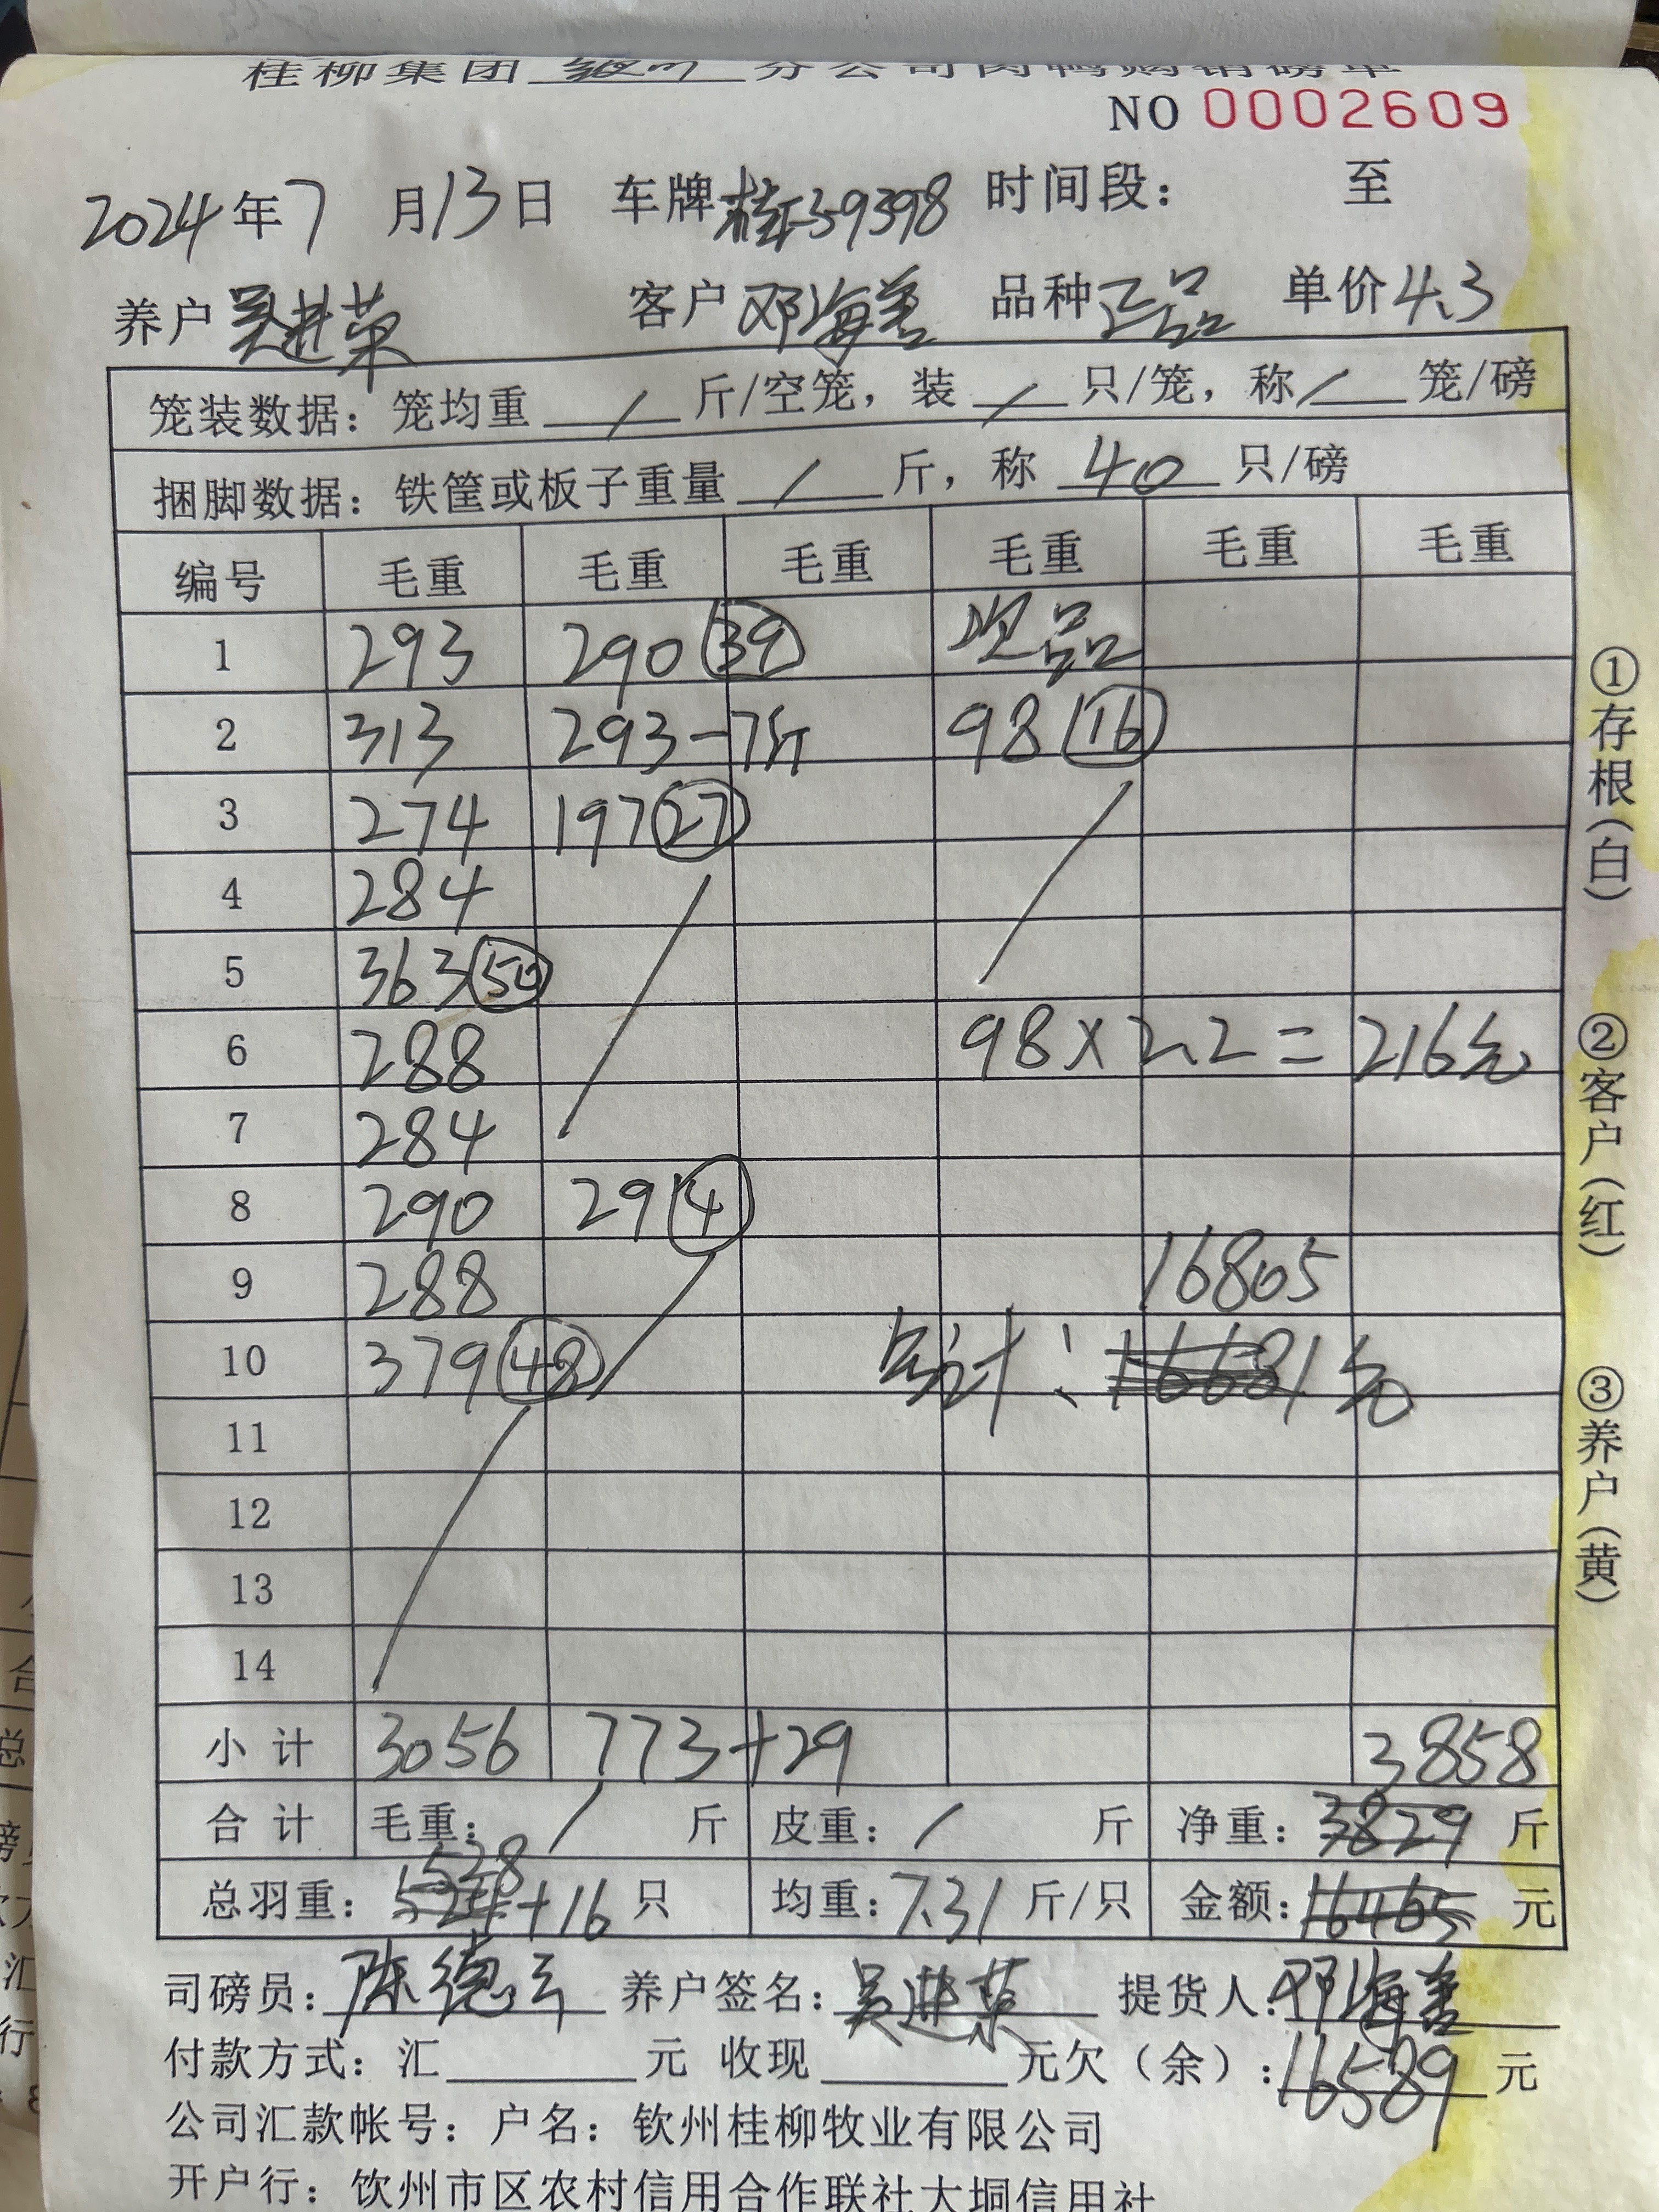 桂柳集团 分公司肉鸭购销磅单
NO 0002609
2024年7月13日 车牌桂 39398 时间段: 至
养户 吴进荣 客户 邓海善 品种 正品 单价 4.3
笼装数据: 笼均重 / 斤/空笼, 装 / 只/笼, 称 / 笼/磅
捆脚数据: 铁筐或板子重量 / 斤, 称 40 只/磅
编号 毛重 毛重 毛重 毛重 毛重 毛重
1 293 290 (39) 次品
2 313 293-7斤 98 (16)
3 274 197 (27)
4 284
5 363 (50)
6 288 98×2.2=216元
7 284
8 290 29 (4)
9 288 16805
10 379 (48) 合计: 16681元
11
12
13
14
小计 3056 773+29 3858
合计 毛重: / 斤 皮重: / 斤 净重: 3829 斤
总羽重: 528 524+16 只 均重: 7.31 斤/只 金额: 16465 元
司磅员: 陈德云 养户签名: 吴进荣 提货人: 邓海善
付款方式: 汇 元 收现 元欠(余): 16589 元
公司汇款帐号: 户名: 钦州桂柳牧业有限公司
开户行: 钦州市区农村信用合作联社大垌信用社
①存根(白) ②客户(红) ③养户(黄)